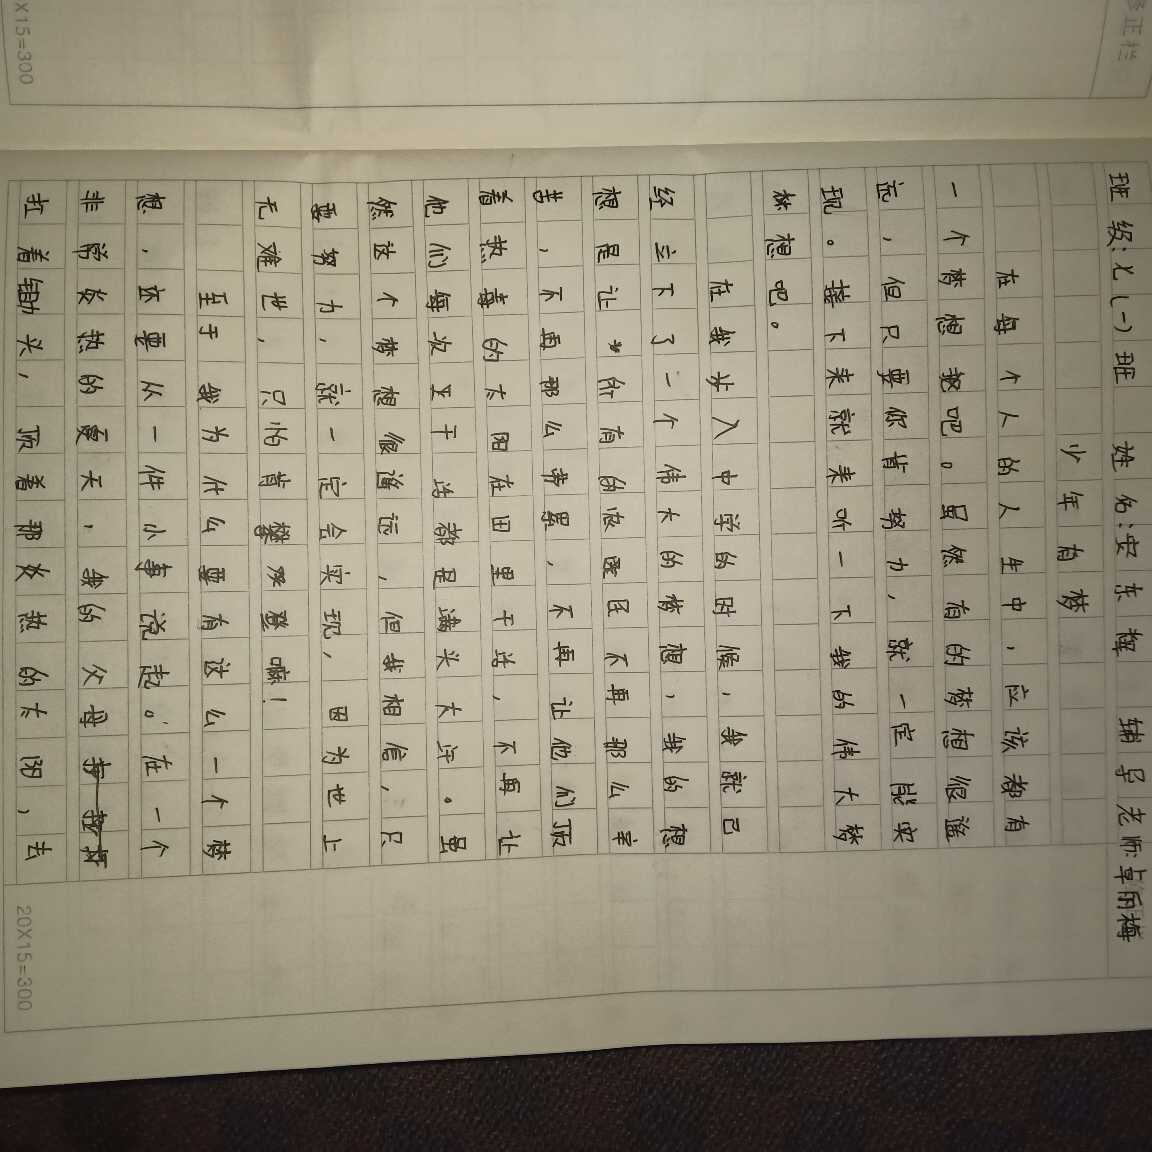 修正栏
X15=300
班级:七(一)班 姓名:安东辉 辅导老师:卓丽梅
少年有梦
在每个人的人生中,应该都有
一个梦想吧。虽然有的梦想很遥
远,但只要你肯努力,就一定能实
现。接下来就来听一下我的伟大梦
想吧。
在我步入中学的时候,我就已
经立下了一个伟大的梦想,我的想
想是让所有的农民不再那么辛
苦,不再那么劳累,不再让他们顶
着热毒的太阳在田里干活,不再让
他们每次干活都是满头大汗。虽
然这个梦想很遥远,但我相信,只
要努力,就一定会实现,因为世上
无难世,只怕肯攀登嘛!
至于我为什么要有这么一个梦
想,还要从一件小事说起。在一个
非常炎热的夏天,我的父母
扛着锄头,顶着那炎热的太阳,去
20X15=300